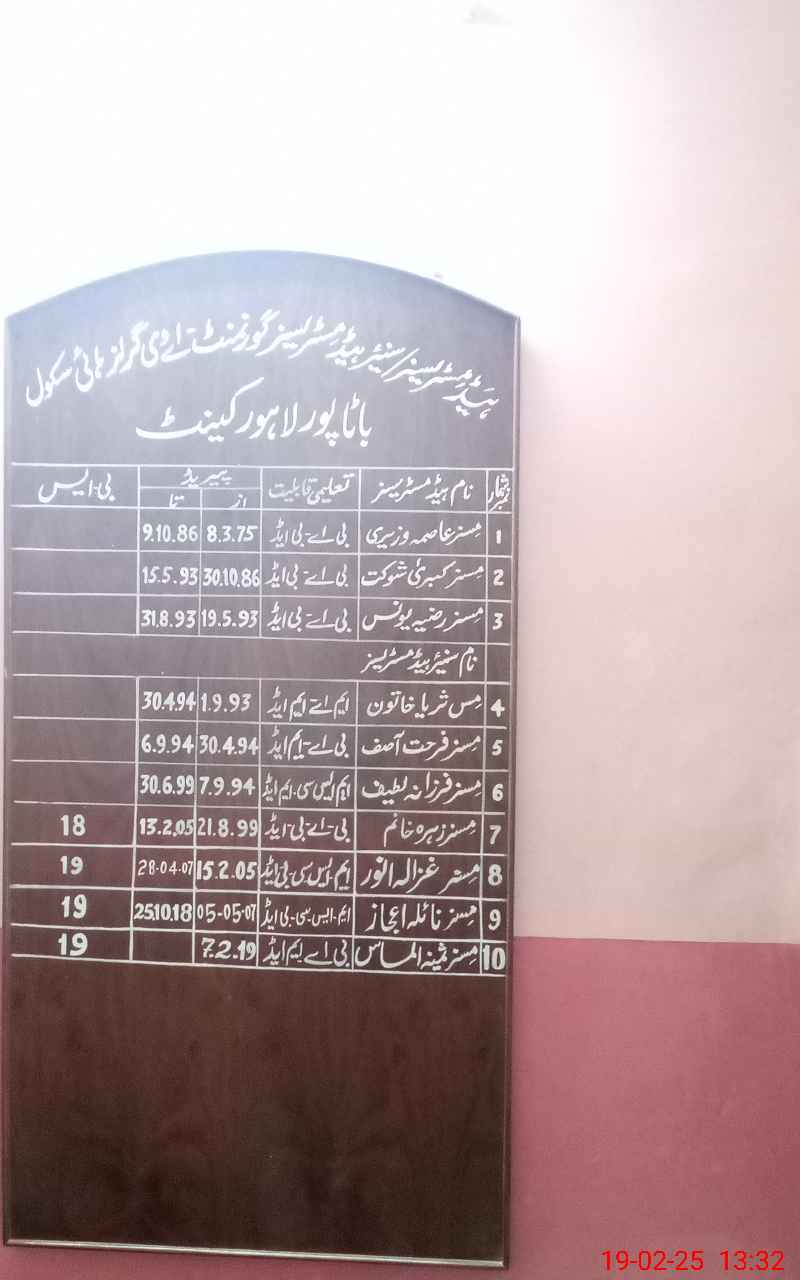 ہیڈ مسٹریسز/سنیئر ہیڈ مسٹریسز گورنمنٹ اے ڈی گرلز ہائی سکول
باٹا پور لاہور کینٹ
نمبر شمار نام ہیڈ مسٹریسز تعلیمی قابلیت پیریڈ بی-ایس
از تا
1 مسز عاصمہ وزیری بی اے-بی ایڈ 8.3.75 9.10.86
2 مسز کبریٰ شوکت بی اے-بی ایڈ 30.10.86 15.5.93
3 مسز رضیہ یونس بی اے-بی ایڈ 19.5.93 31.8.93
نام سنیئر ہیڈ مسٹریسز
4 مس ثریا خاتون ایم اے-ایم ایڈ 1.9.93 30.4.94
5 مسز فرحت آصف بی اے-ایم ایڈ 30.4.94 6.9.94
6 مسز فرزانہ لطیف ایم ایس سی-ایم ایڈ 7.9.94 30.6.99
7 مسز زہرہ خانم بی-اے-بی-ایڈ 21.8.99 13.2.05 18
8 مسز غزالہ انور ایم ایس سی-بی ایڈ 15.2.05 28-04-07 19
9 مسز نائلہ اعجاز ایم-ایس-سی-بی ایڈ 05-05-07 25.10.18 19
10 مسز ثمینہ الماس بی اے ایم ایڈ 7.2.19 19
19-02-25 13:32